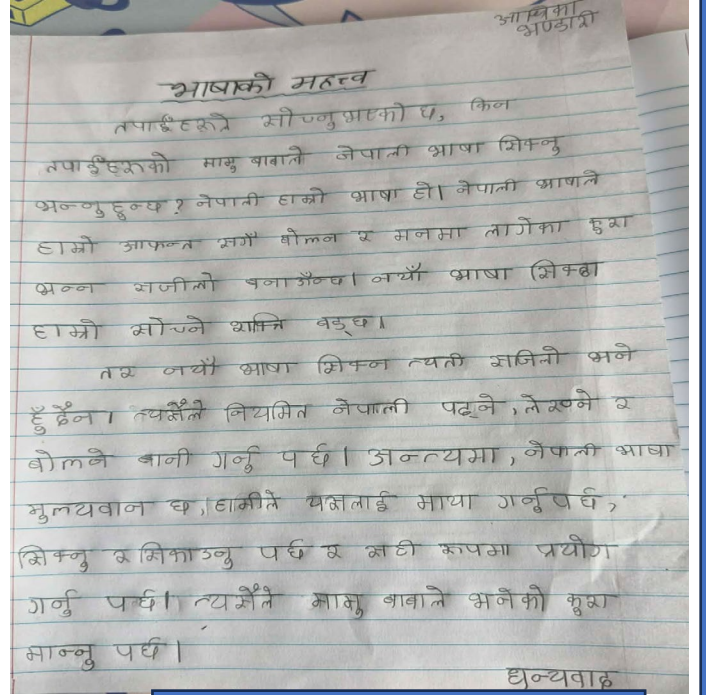 आश्विका
भण्डारी
भाषाको महत्त्व
तपाईहरूले सोच्नुभएको छ, किन
तपाईहरूको मामु बाबाले नेपाली भाषा सिक्नु
भन्नुहुन्छ? नेपाली हाम्रो भाषा हो। नेपाली भाषाले
हाम्रो आफन्त सगँ बोल्न र मनमा लागेका कुरा
भन्न सजीलो बनाउँन्छ। नयाँ भाषा सिक्दा
हाम्रो सोच्ने शक्ति बड्छ।
तर नयाँ भाषा सिक्न त्यती सजिलो भने
हुँदैन। त्यसैले नियमित नेपाली पढ्ने, लेख्ने र
बोल्ने बानी गर्नु पर्छ। अन्त्यमा, नेपाली भाषा
मुल्यवान छ, हामीले यसलाई माया गर्नुपर्छ,
सिक्नु र सिकाउनु पर्छ र सही रूपमा प्रयोग
गर्नु पर्छ। त्यसैले मामु बाबाले भनेको कुरा
मान्नु पर्छ।
धन्यवाद